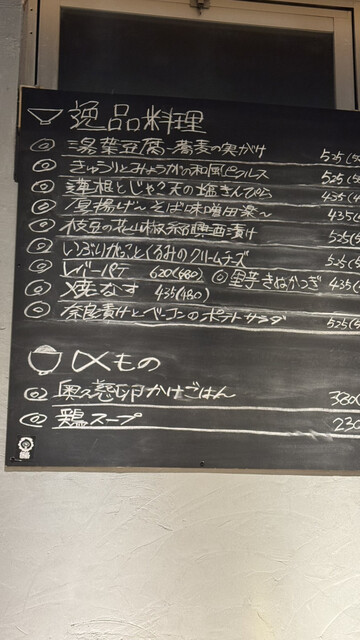 逸品料理
◎ 湯葉豆腐-蕎麦の実がけ 525(5
◎ きゅうりとみょうがの和風ピクルス 525(5
◎ 蓮根とじゃこ天の塩きんぴら 435(4
◎ 厚揚げ〜そば味噌田楽〜 435(
◎ 枝豆の花山椒紹興酒漬け 525(5
◎ いぶりがっことくるみのクリームチーズ 525(5
◎ レバーパテ 620(680) ◎ 里芋きぬかつぎ 435(
◎ 焼なす 435(480)
◎ 奈良漬けとベーコンのポテトサラダ 525(5
〆もの
◎ 奥久慈卵かけごはん 380(
◎ 鶏スープ 230